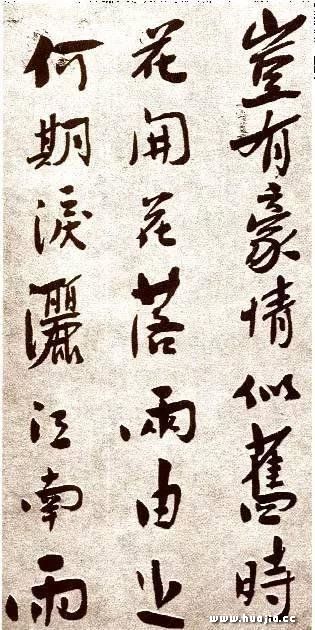 豈有豪情似舊時
花開花落兩由之
何期淚灑江南雨
www.huajia.cc